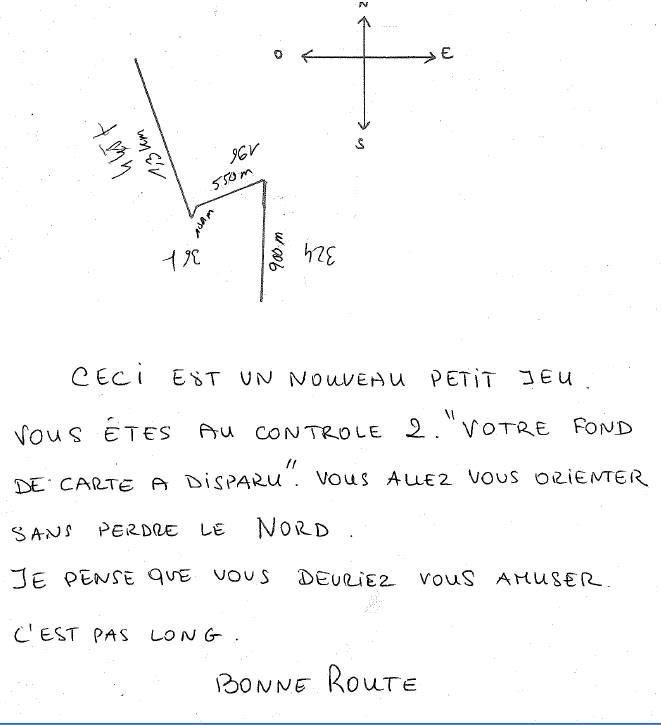 N
O E
S
1,3 km
196
550 m
900 m
324
CECI EST UN NOUVEAU PETIT JEU.
VOUS ÊTES AU CONTROLE 2. "VOTRE FOND
DE CARTE A DISPARU". VOUS ALLEZ VOUS ORIENTER
SANS PERDRE LE NORD.
JE PENSE QUE VOUS DEVRIEZ VOUS AMUSER.
C'EST PAS LONG.
BONNE ROUTE